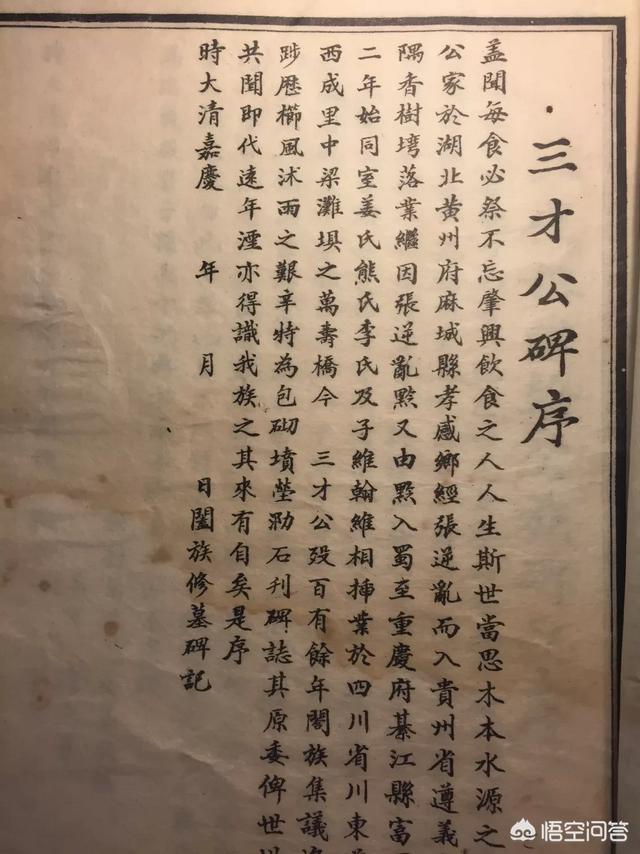 三才公碑序
蓋聞每食必祭不忘肇興飲食之人人生斯世當思木本水源之
公家於湖北黃州府麻城縣孝感鄉經張逆亂而入貴州省遵義
隅香樹塆落業繼因張逆亂黔又由黔入蜀至重慶府綦江縣富
二年始同室姜氏熊氏李氏及子維翰維相插業於四川省川東
西成里中梁灘垻之萬壽橋今 三才公歿百有餘年闔族集議
跡歷櫛風沐雨之艱辛特為包砌墳塋泐石刊碑誌其原委俾世
共聞即代遠年湮亦得識我族之其來有自矣是序
時大清嘉慶 年 月 日闔族修墓碑記
悟空问答